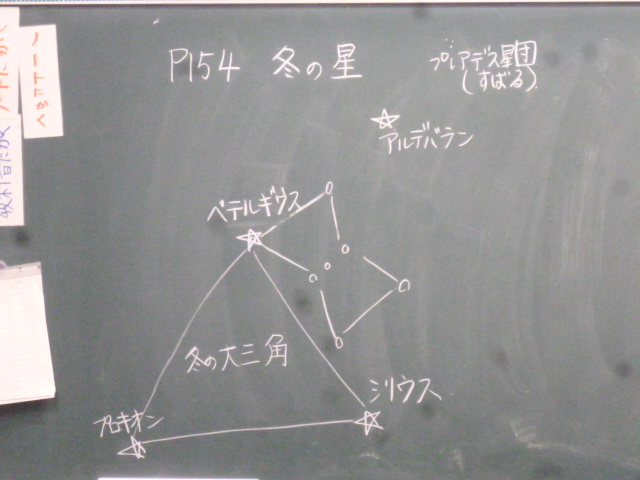 ノートにかく
ノートにかく
P154 冬の星
プレアデス星団
(すばる)
アルデバラン
ベテルギウス
冬の大三角
シリウス
プロキオン